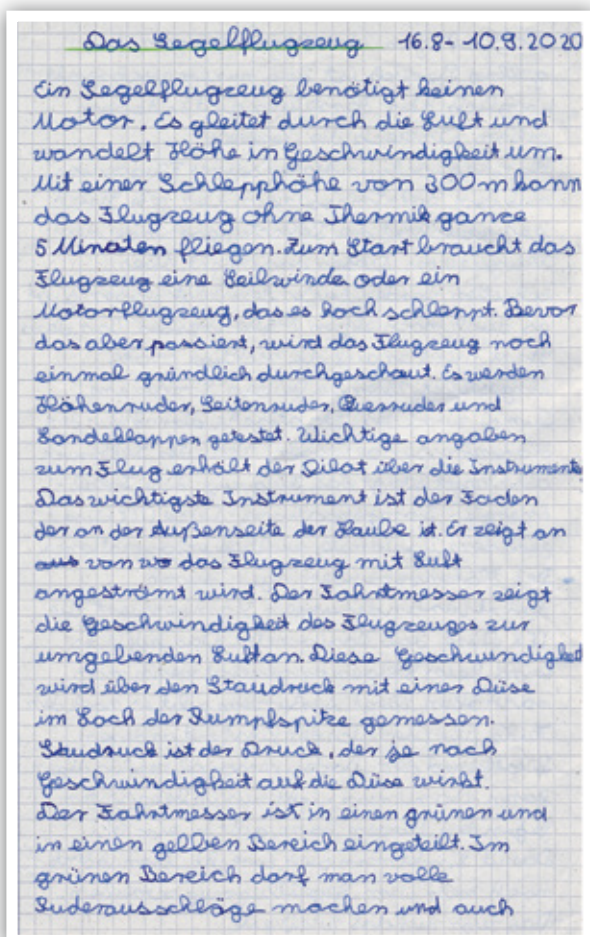 Das Segelflugzeug 16.8-10.9.2020
Ein Segelflugzeug benötigt keinen
Motor. Es gleitet durch die Luft und
wandelt Höhe in Geschwindigkeit um.
Mit einer Schlepphöhe von 300m kann
das Flugzeug ohne Thermik ganze
5 Minuten fliegen. Zum Start braucht das
Flugzeug eine Seilwinde oder ein
Motorflugzeug, das es hoch schleppt. Bevor
das aber passiert, wird das Flugzeug noch
einmal gründlich durchgeschaut. Es werden
Höhenruder, Seitenruder, Querruder und
Landeklappen getestet. Wichtige angaben
zum Flug erhält der Pilot über die Instrumente
Das wichtigste Instrument ist der Faden
der an der Außenseite der Haube ist. Er zeigt an
aus von wo das Flugzeug mit Luft
angeströmt wird. Der Fahrtmesser zeigt
die Geschwindigkeit des Flugzeuges zur
umgebenden Luft an. Diese Geschwindigkeit
wird über den Staudruck mit einer Düse
im Loch der Rumpfspitze gemessen.
Staudruck ist der Druck, der je nach
Geschwindigkeit auf die Düse wirkt.
Der Fahrtmesser ist in einen grünen und
in einen gelben Bereich eingeteilt. Im
grünen Bereich darf man volle
Ruderausschläge machen und auch